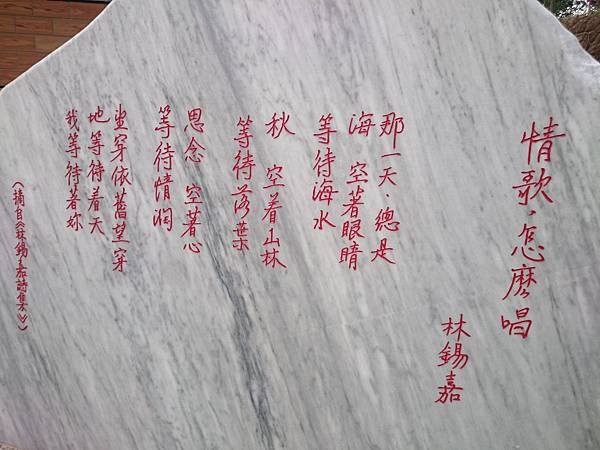 情歌，怎麼唱
林錫嘉
那一天，總是
海 空著眼睛
等待海水
秋 空着山林
等待落葉
思念 空著心
等待情潤
坐穿依舊望穿
地等待着天
我等待著妳
《摘自《林錫嘉詩集》》